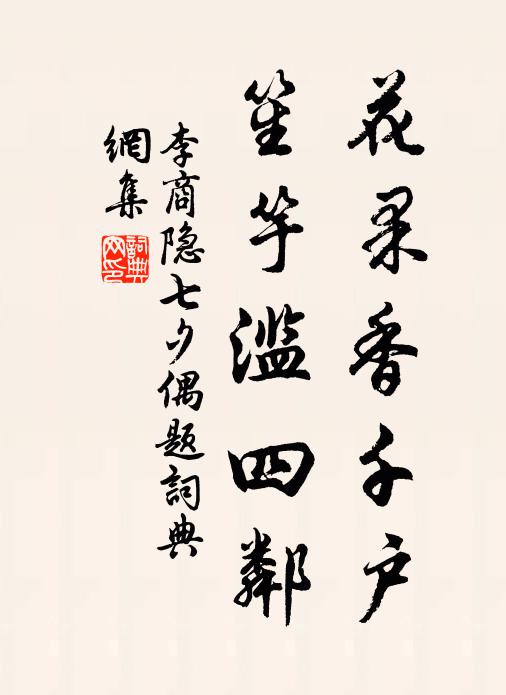 花果香千户
笙竽滥四鄰
李商隐七夕偶题詞典
網集
詞典
网印